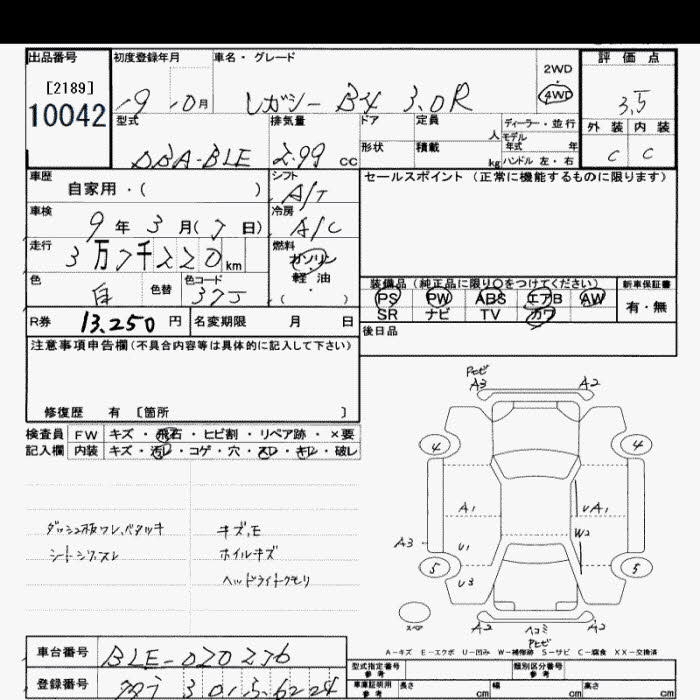 出品番号 初度登録年月 車名・グレード 評価点
[2189]
10042
19 10月 レガシー B4 3.0R 2WD ・ 4WD 3.5
型式 排気量 ドア 定員 人 ディーラー・並行 外装 内装
モデル年式 年
DBA-BLE 2.99 cc 形状 積載 kg ハンドル 左・右 C C
車歴 シフト セールスポイント(正常に機能するものに限ります)
自家用・( ) A/T
車検 冷房
9年3月( 日) A/C
走行 燃料
3万7千220km ガソリン
軽・油
( )
色 色替 色コード
白 37J
装備品(純正品に限り○をつけてください) 新車保証書
PS PW ABS エアB AW 有・無
SR ナビ TV カワ
R券 13,250円 名変期限 月 日 後日品
注意事項申告欄(不具合内容等は具体的に記入して下さい)
修復歴 有 [箇所 ]
検査員 FW キズ・飛石・ヒビ割・リペア跡・×要
記入欄 内装 キズ・汚レ・コゲ・穴・スレ・キレ・破レ
ダッシュ板ワレ、ベタツキ
シートシワ、スレ
キズ、モ
ホイルキズ
ヘッドライトクモリ
Pヒビ
A3 A2
4 4
A1 UA1
A3 U1 W2
5 5
U3
スペア A2 ヘコミ A2
Pヒビ
A-キズ E-エクボ U-凹み W-補修跡 S-サビ C-腐食 XX-交換済
車台番号 BLE-020276
型式指定番号 参考 類別区分番号 参考
登録番号 301 6224
車庫証明用 参考 長さ cm 幅 cm 高さ cm